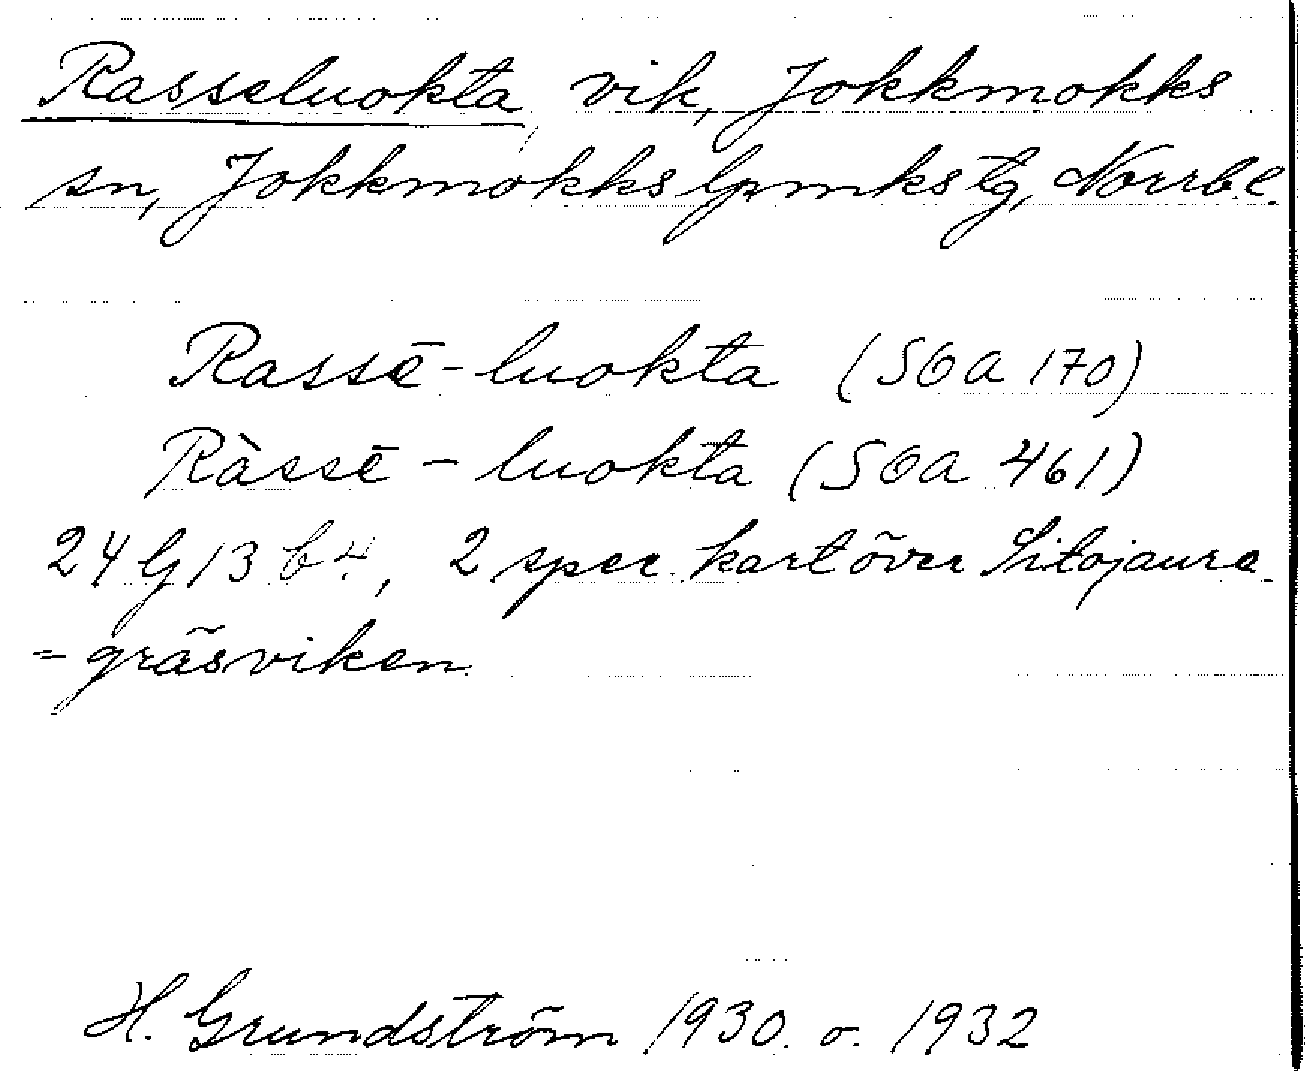 Rasseluokta, vik, Jokkmokks
sn, Jokkmokks lpmks tg, Norrb.l.
Rassē-luokta (SOA 170)
Ràssē-luokta (SOA 461)
24 G 13 b 4, 2 spec. kart över Sitojaure
= gräsviken.
H. Grundström 1930. o. 1932